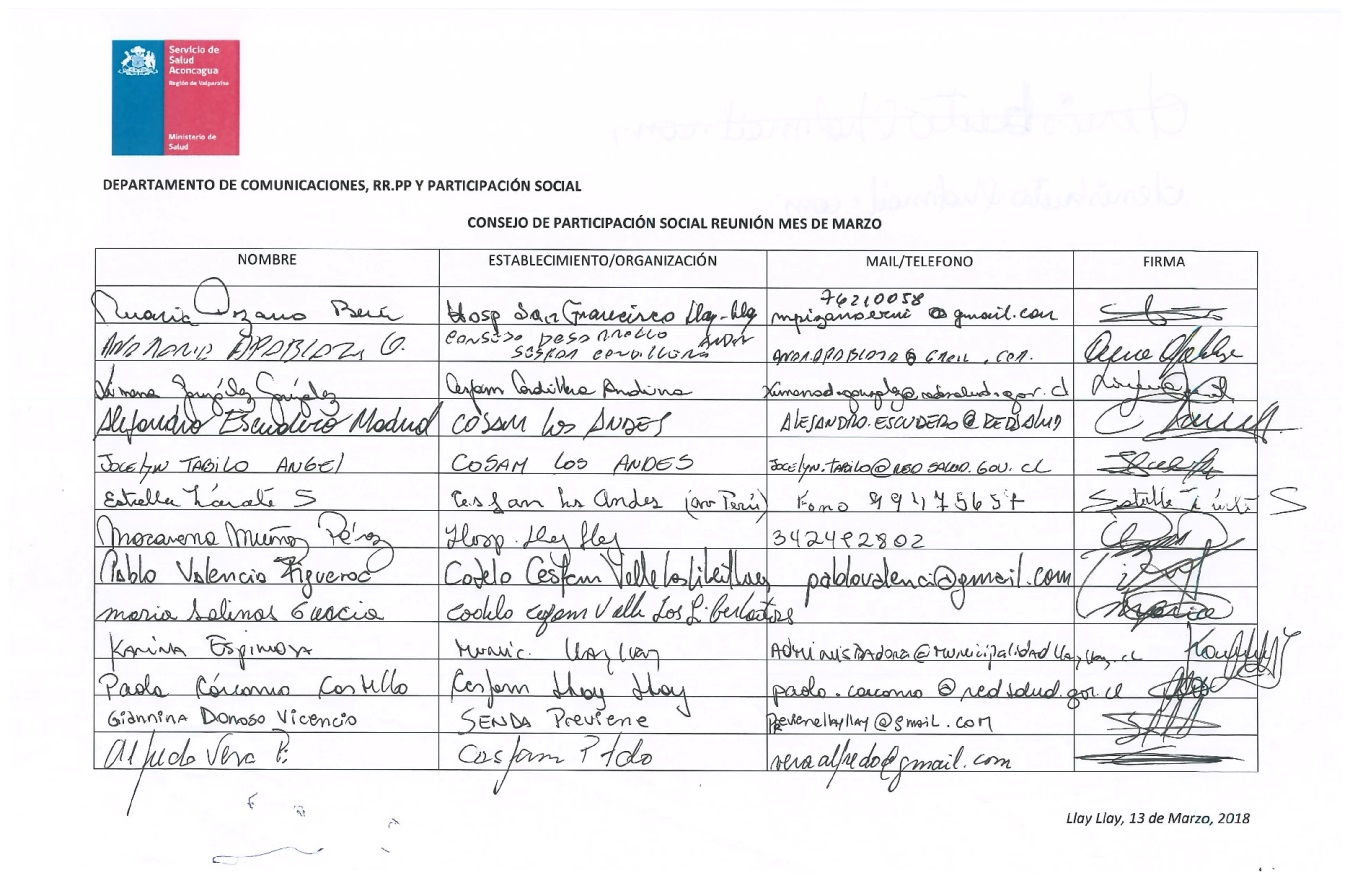 Servicio de
Salud
Aconcagua
Región de Valparaíso
Ministerio de
Salud
DEPARTAMENTO DE COMUNICACIONES, RR.PP Y PARTICIPACIÓN SOCIAL
CONSEJO DE PARTICIPACIÓN SOCIAL REUNIÓN MES DE MARZO
NOMBRE ESTABLECIMIENTO/ORGANIZACIÓN MAIL/TELEFONO FIRMA
76210058
Maria Hosp San Francisco Llay-Llay @gmail.com
Consejo Desarrollo
ANA MARIA APABLAZA G.
Ximena González González Cesfam Cordillera Andina
Alejandro Escudero Madrid COSAM Los ANDES ALEJANDRO.ESCUDERO@REDSALUD
JOCELYN TABILO ANGEL COSAM LOS ANDES JOCELYN.TABILO@REDSALUD.GOV.CL
Estrella Zárate S Cesfam Los Andes Fono 99475657
Macarena Muñoz Pérez Hosp. Llay Llay 342492802
Pablo Valencia Figueroa Codelo Cesfam Valle Los Libertadores pablovalenci@gmail.com
maria Salinas Codelo Cesfam Valle Los Libertadores
KARINA Espinoza Munic. Llay llay ADMINISTRADORA@MUNICIPALIDADllayllay.cl
Paola Cárcamo Castillo Cesfam Llay Llay paola.carcamo@redsalud.gov.cl
Giannina Donoso Vicencio SENDA Previene Previenellayllay@gmail.com
Alfredo Vera P. Cesfam veraalfredo@gmail.com
Llay Llay, 13 de Marzo, 2018